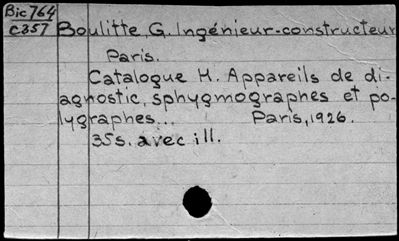 Bic 764
C357
Boulitte, G. Ingénieur-constructeur
Paris.
Catalogue H. Appareils de di-
agnostic, sphygmographes et po-
lygraphes... Paris, 1926.
35s. avec ill.